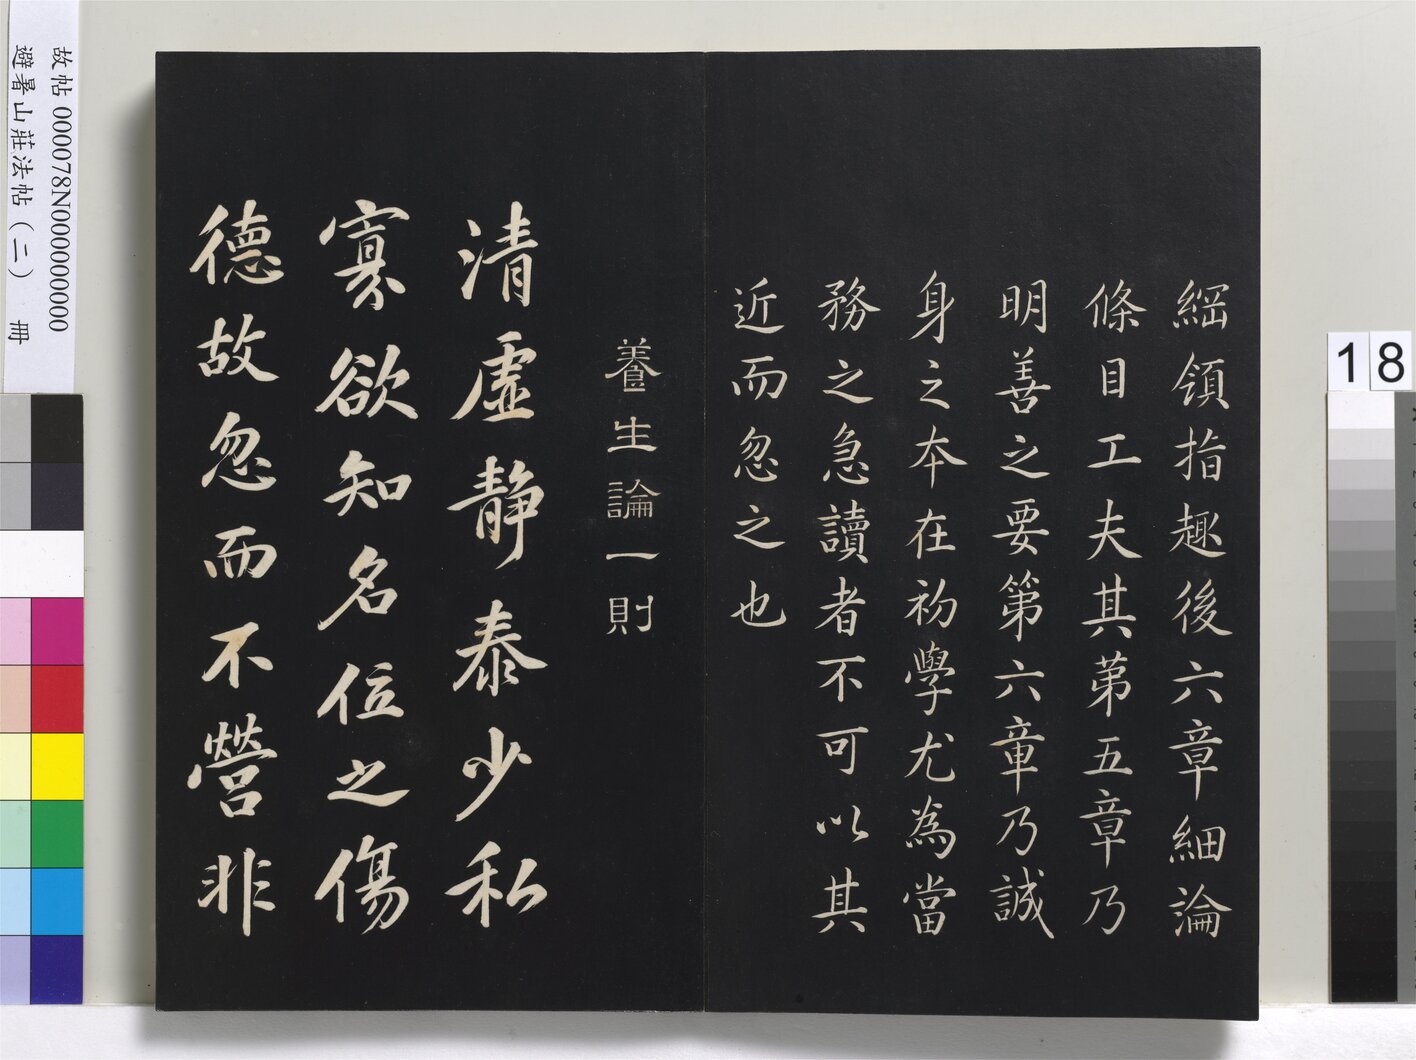 綱領指趣後六章細論
條目工夫其第五章乃
明善之要第六章乃誠
身之本在初學尤為當
務之急讀者不可以其
近而忽之也
養生論一則
清虛靜泰少私
寡欲知名位之傷
德故忽而不營非
故帖 000078N000000000
避暑山莊法帖(二) 冊
18